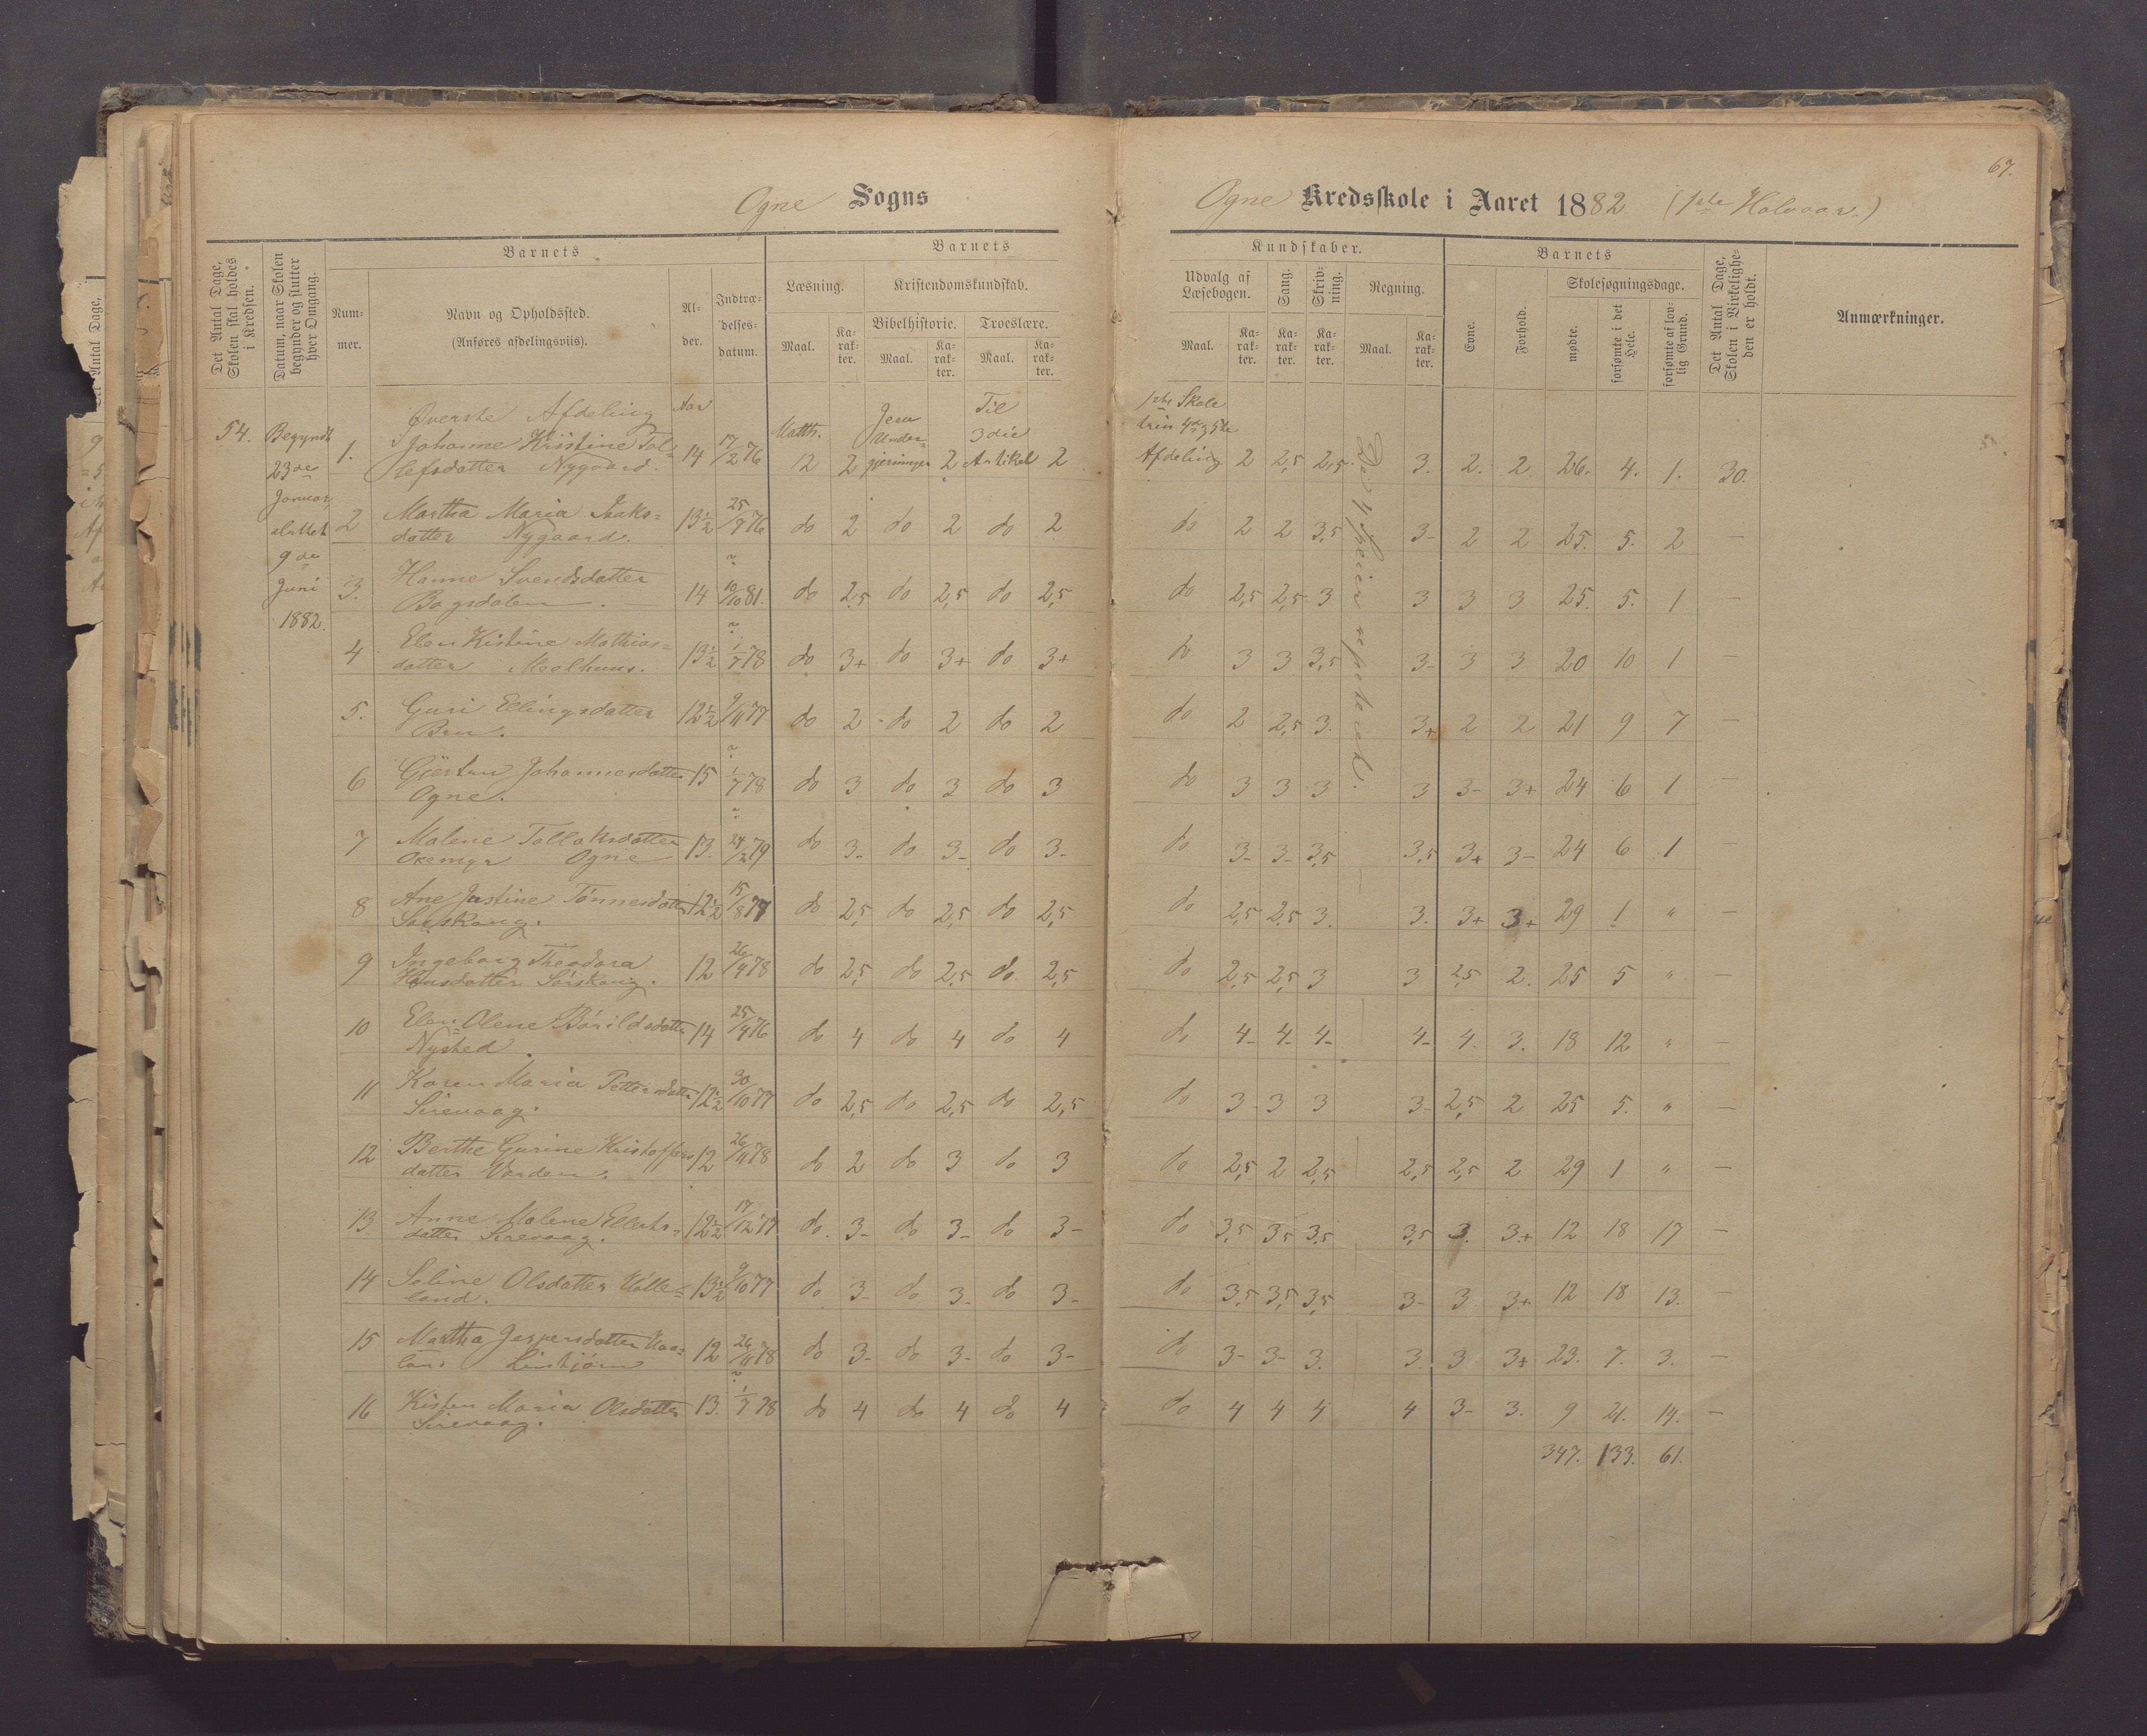 67.
Ogne Sogns
Ogne Kredsskole i Aaret 1882. (1ste Halvaar.)
Det Antal Dage, Skolen skal holdes i Kredsen.
Datum, naar Skolen begynder og slutter hver Omgang.
Barnets
Num-mer.
Navn og Opholdssted.
(Anføres afdelingsviis).
Al-der.
Indtræ-delses-datum.
Barnets
Læsning.
Maal.
Ka-rak-ter.
Kristendomskundskab.
Bibelhistorie.
Maal.
Ka-rak-ter.
Troeslære.
Maal.
Ka-rak-ter.
Kundskaber.
Udvalg af Læsebogen.
Maal.
Ka-rak-ter.
Sang.
Ka-rak-ter.
Skriv-ning.
Ka-rak-ter.
Regning.
Maal.
Ka-rak-ter.
Barnets
Evne.
Forhold.
Skolesøgningsdage.
mødte.
forsømte i det Hele.
forsømte af lov-lig Grund.
Det Antal Dage, Skolen i Virkelighe-den er holdt.
Anmærkninger.
54.
Begyndt
23de
Januar,
sluttet
9de
Juni
1882.
Øverste Afdeling Aar
Matth. 12
Jesu Under-gjerninger
Til 3die Artikel
1ste Skole
trin 4de & 5te
Afdeling
De 4 Speier repeteret.
1. Johanne Kristine Tol-
lefsdatter Nygaard. 14 17/2 76 2 2 2 2 2,5 2,5 3. 2. 2 26. 4. 1. 30.
2 Martha Maria Isaks=
datter Nygaard. 13½ 25/9 76 do 2 do 2 do 2 do 2 2 3,5 3- 2 2 25. 5. 2 —
3. Hanne Svendsdatter
Bogsdalen. 14 10/10 81. do 2,5 do 2,5 do 2,5 do 2,5 2,5 3 3 3 3 25. 5. 1 —
4 Elen Kistine Mathias=
datter Moelhuus. 13½ 1/7 78 do 3+ do 3+ do 3+ do 3 3 3,5 3- 3 3 20 10 1 —
5. Guri Ellingsdatter
Bru. 12½ 9/11 77 do 2 do 2 do 2 do 2 2,5 3. 3+ 2 2 21 9 7 —
6 Gjertru Johannesdatter
Ogne. 15 1/7 78 do 3 do 3 do 3 do 3 3 3 3 3- 3+ 24 6 1 —
7 Malene Tollaksdatter
Oxemyr Ogne 13. 24/2 79 do 3- do 3- do 3- do 3- 3- 3,5 3,5 3+ 3- 24 6 1 —
8 Ane Justine Tønnesdatter
Sørskong. 12½ 15/8 77 do 2,5 do 2,5 do 2,5 do 2,5 2,5 3. 3. 3+ 3+ 29 1 " —
9 Ingeborg Theodora
Hansdatter Sørskong. 12 26/4 78 do 2,5 do 2,5 do 2,5 do 2,5 2,5 3 3 2,5 2. 25 5 " —
10 Elen Olene Bårildsdatter
Nysted 14 25/9 76 do 4 do 4 do 4 do 4- 4- 4- 4- 4. 3. 18 12 " —
11 Karen Maria Pettersdatter
Sirevaag. 12½ 30/10 77 do 2,5 do 2,5 do 2,5 do 3- 3 3 3- 2,5 2 25 5. " —
12 Berthe Gurine Kristoffers
datter Varden. 12 26/11 78 do 2 do 3 do 3 do 2,5 2 2,5 2,5 2,5 2 29 1 " —
13 Anne Malene Ellerts=
datter Sirevaag. 12½ 17/12 77 do. 3- do 3- do 3- do 3,5 3,5 3,5 3,5 3. 3+ 12 18 17 —
14 Seline Olsdatter Hølle=
land. 13½ 9/10 77 do 3- do 3- do 3- do 3,5 3,5 3,5 3- 3 3+ 12 18 13. —
15 Martha Jespersdatter Haa=
12 26/11 78 do 3- do 3- do 3- do 3- 3- 3. 3. 3 3+ 23. 7. 3. —
16 Kisten Maria Olsdatter
Sirevaag. 13. 1/7 78 do 4 do 4 do 4 do 4 4 4 4 3- 3. 9 21. 14. —
347. 133. 61.